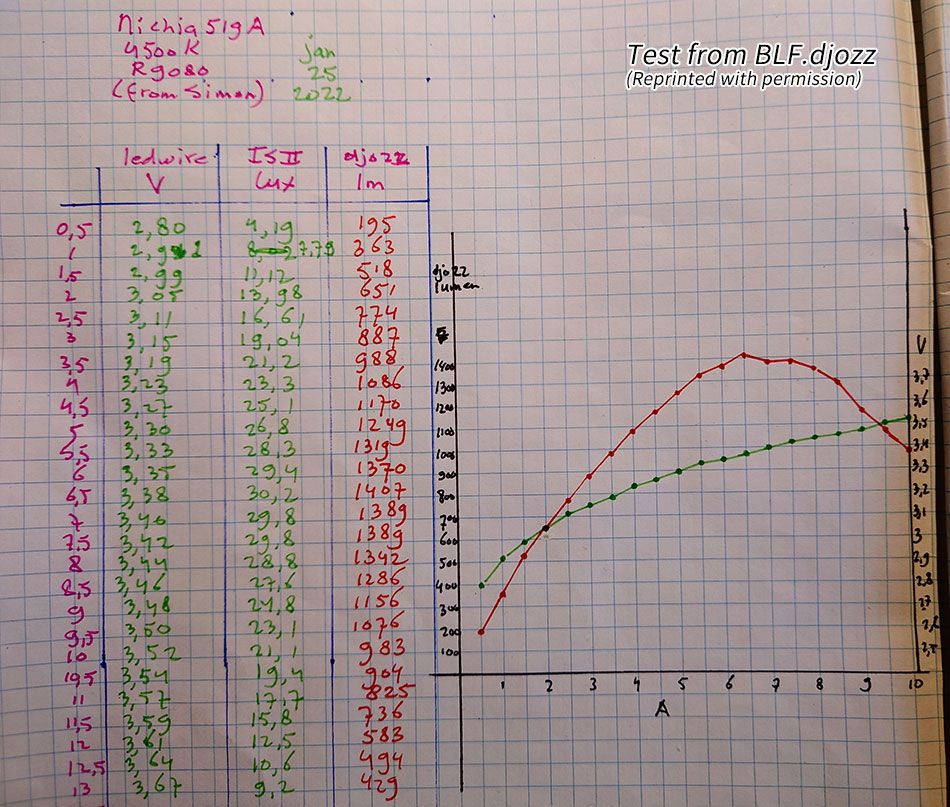 Nichia 519A
4500K
R9080
(from Simon)
jan
25
2022
Test from BLF.djozz
(Reprinted with permission)
ledwire ISII djozz
V Lux lm
0,5 2,80 4,19 195
1 2,91 7,79 363
1,5 2,99 11,12 518
2 3,05 13,98 651
2,5 3,11 16,61 774
3 3,15 19,04 887
3,5 3,19 21,2 988
4 3,23 23,3 1086
4,5 3,27 25,1 1170
5 3,30 26,8 1249
5,5 3,33 28,3 1319
6 3,35 29,4 1370
6,5 3,38 30,2 1407
7 3,40 29,8 1389
7,5 3,42 29,8 1389
8 3,44 28,8 1342
8,5 3,46 27,6 1286
9 3,48 24,8 1156
9,5 3,50 23,1 1076
10 3,52 21,1 983
10,5 3,54 19,4 904
11 3,57 17,7 825
11,5 3,59 15,8 736
12 3,61 12,5 583
12,5 3,64 10,6 494
13 3,67 9,2 429
djozz
lumen
1400
1300
1200
1100
1000
900
800
700
600
500
400
300
200
100
V
3,7
3,6
3,5
3,3
3,2
3,1
3
2,9
2,8
2,7
2,6
2,5
1 2 3 4 5 6 7 8 9 10
A